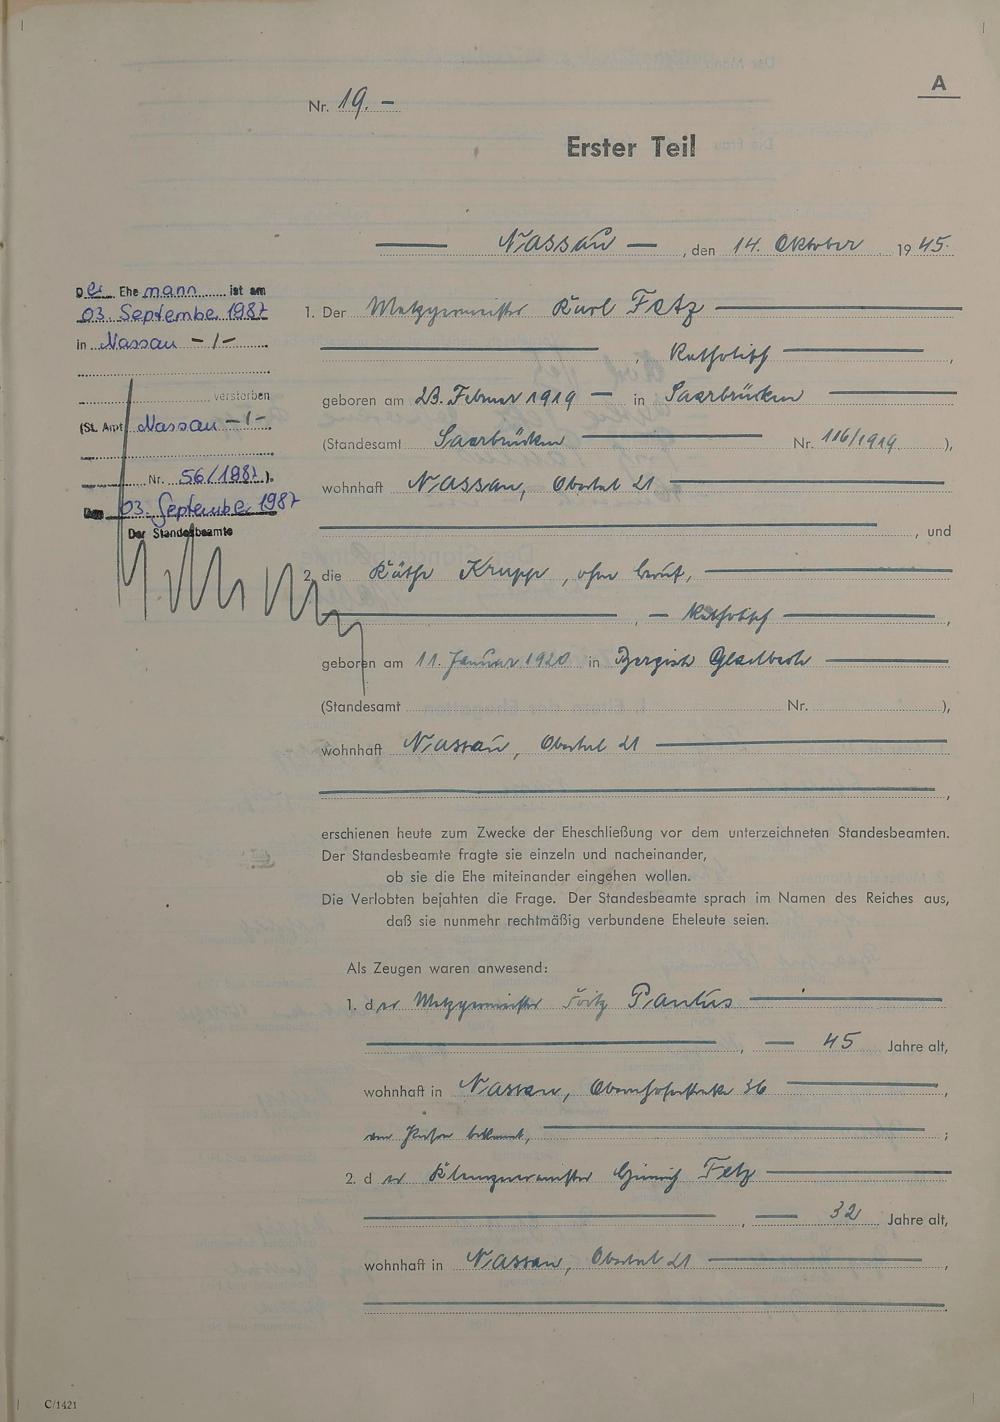 A
Nr. 19. –
Erster Teil
Nassau –, den 14. Oktober 1945.
Der Ehemann ist am
03. September 1987
in Nassau -/-
verstorben
(St. Amt Nassau -/-
Nr. 56/1987).
Den 03. September 1987
Der Standesbeamte
1. Der Metzgermeister Karl Fetz
, katholisch ,
geboren am 23. Februar 1919 – in Saarbrücken
(Standesamt Saarbrücken Nr. 116/1919 ),
wohnhaft Nassau, Obertal 21
, und
2. die Käthe Krupp, ohne Beruf,
, – katholisch ,
geboren am 11. Januar 1920 in Bergisch Gladbach
(Standesamt Nr. ),
wohnhaft Nassau, Obertal 21
,
erschienen heute zum Zwecke der Eheschließung vor dem unterzeichneten Standesbeamten.
Der Standesbeamte fragte sie einzeln und nacheinander,
ob sie die Ehe miteinander eingehen wollen.
Die Verlobten bejahten die Frage. Der Standesbeamte sprach im Namen des Reiches aus,
daß sie nunmehr rechtmäßig verbundene Eheleute seien.
Als Zeugen waren anwesend:
1. der Metzgermeister Fritz Paulus
, – 45 Jahre alt,
wohnhaft in Nassau, 36 ,
von Person bekannt, ;
2. der Heinrich Fetz
, – 32 Jahre alt,
wohnhaft in Nassau, Obertal 21 ,
C/1421